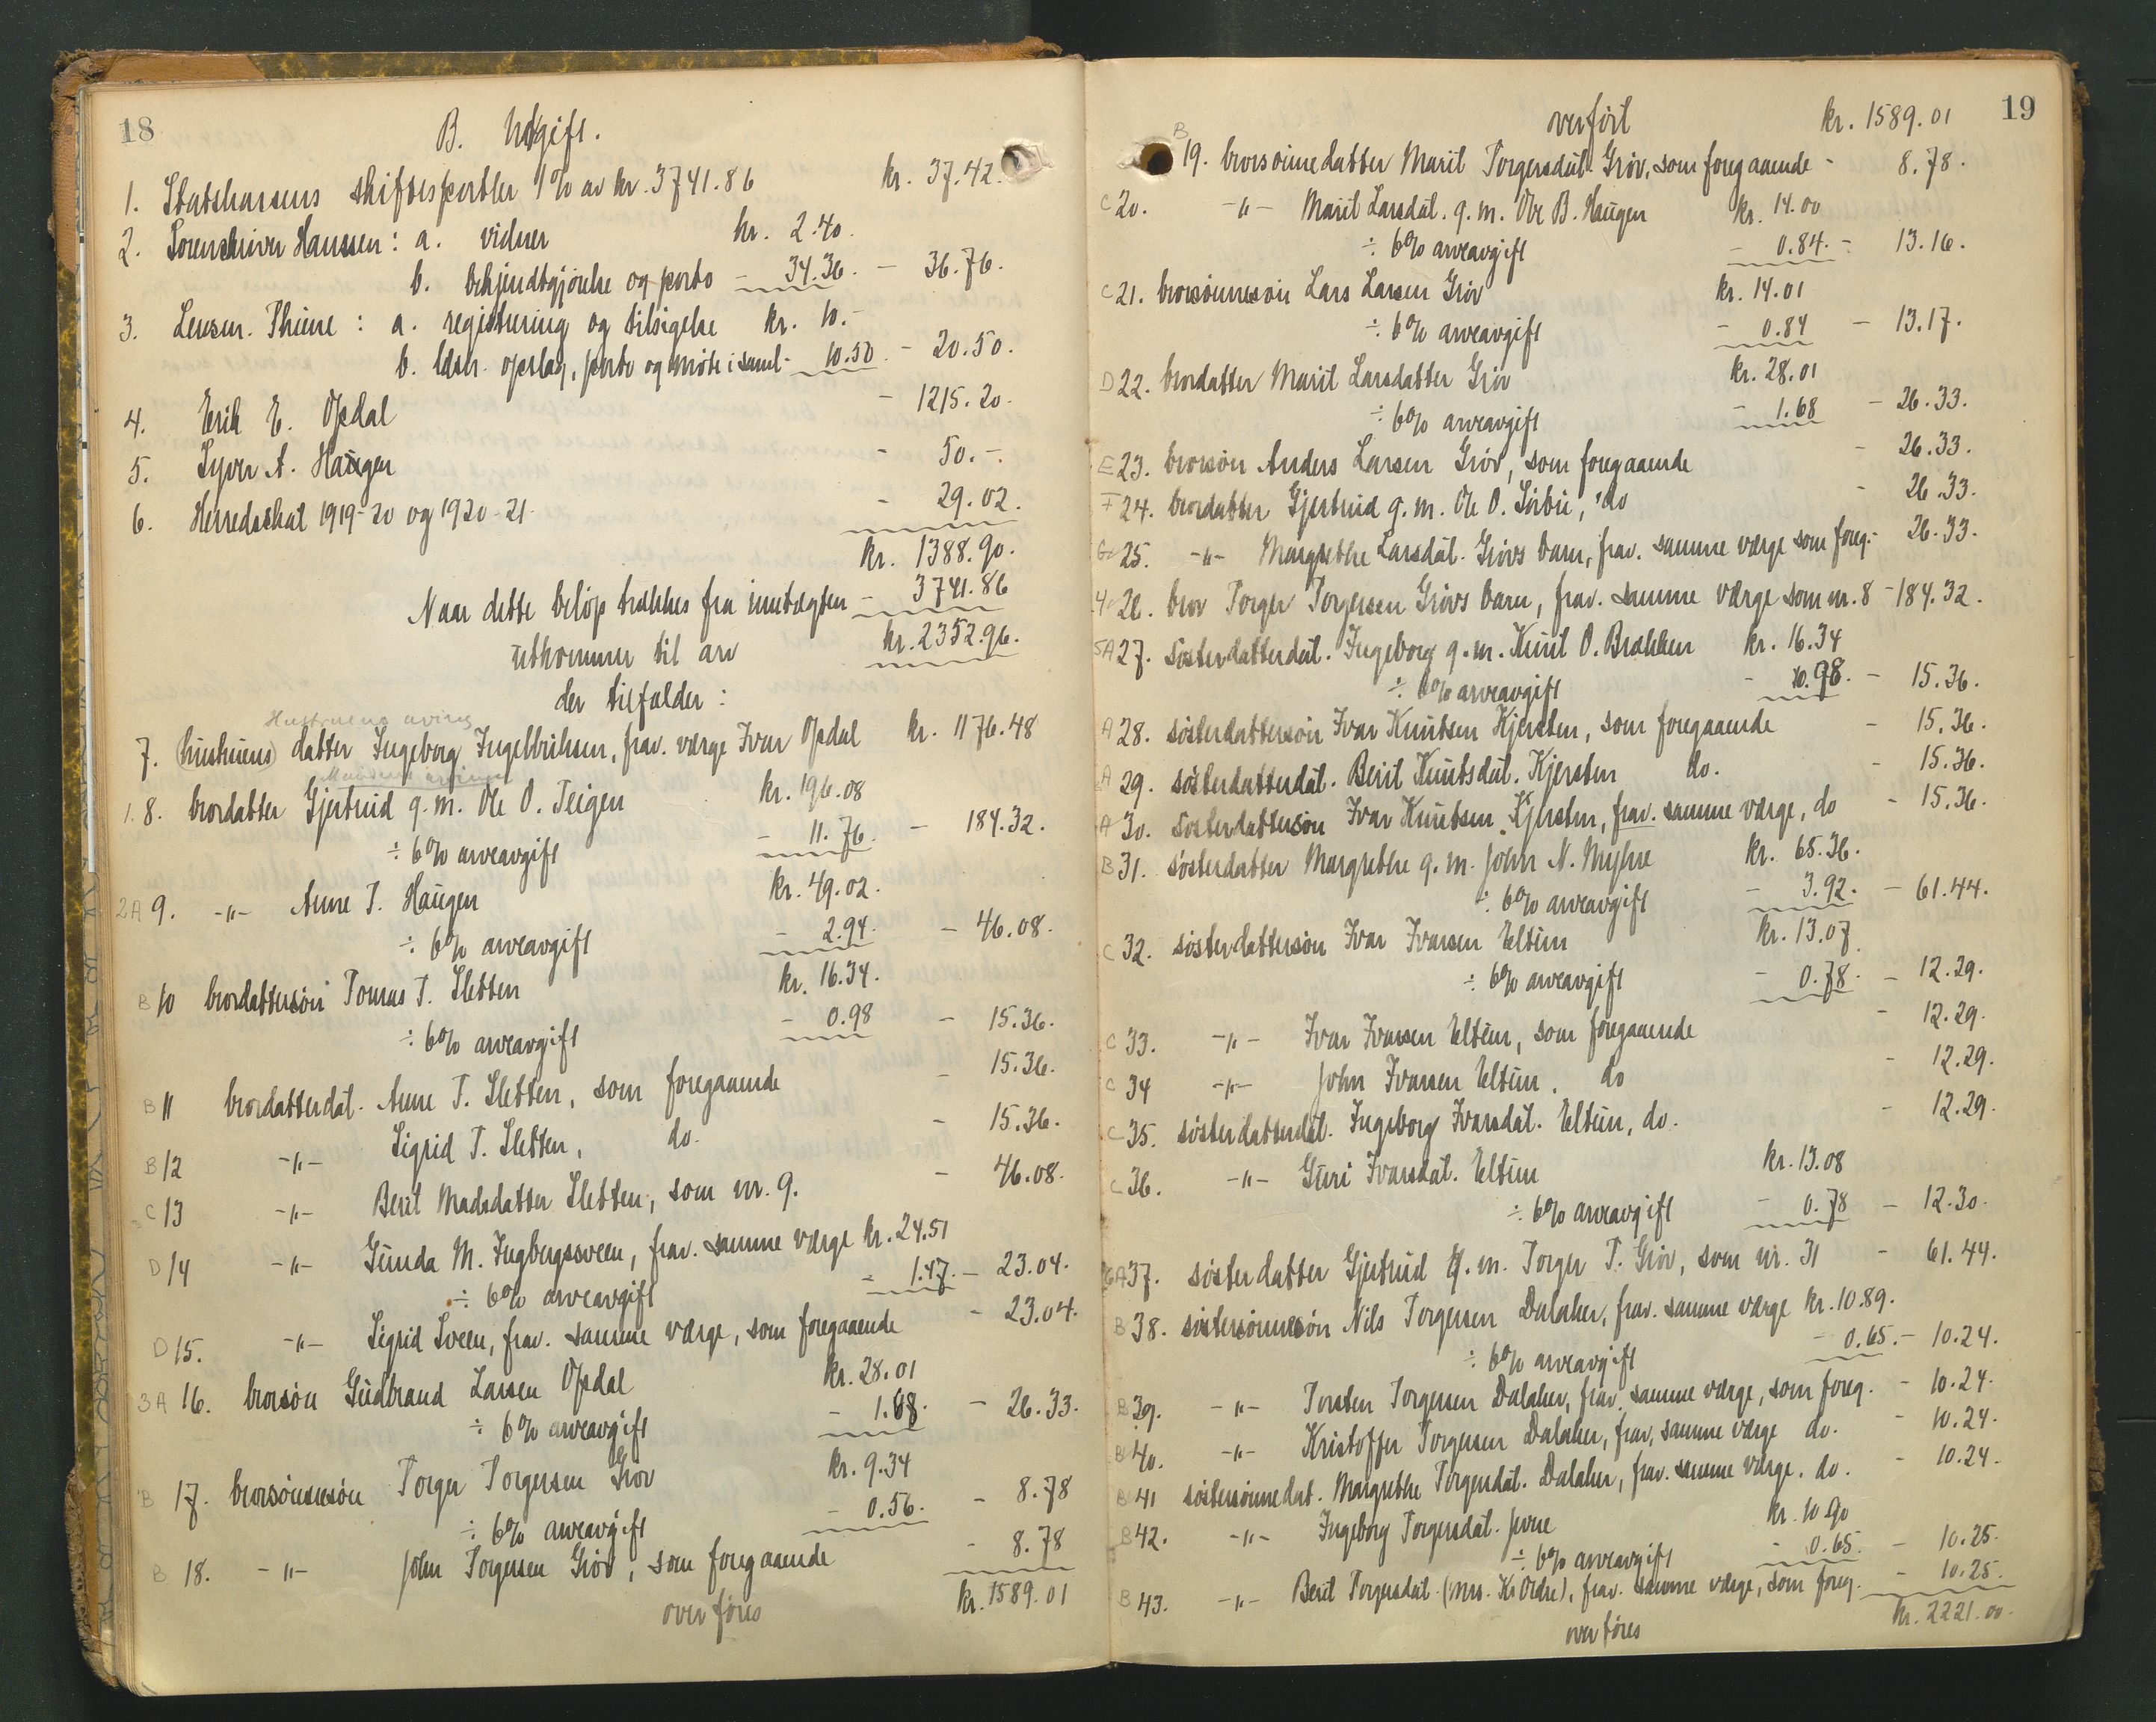 18
B. Utgift.
1. Statskassens skiftesportler 1% av kr. 3741.86 kr. 37.42.
2. Sorenskriver Hanssen: a. vidner kr. 2.40.
b. bekjendtgjörelse og porto - 34.36. - 36.76.
3. Lensm. Thune: a. registrering og tilsigelse kr. 10.-
b. opslag, porto og möte i saml - 10.50 - 20.50.
4. Erik E. Opdal - 1215.20.
5. Syver A. Haugen - 50.-
6. Herredsskat 1919-20 og 1920-21 - 29.02.
kr. 1388.90.
Naar dette belöp trækkes fra indtægten - 3741.86
utkommer til arv kr. 2352.96.
der tilfalder:
Hustruens arving
7. (hustruens) datter Ingeborg Ingebriktsen, frav. værge Ivar Opdal kr. 1176.48
Mandens arvinger
1. 8. brordatter Gjertrud g.m. Ole O. Teigen kr. 196.08
÷ 6% arveavgift - 11.76. - 184.32.
2A 9. -"- Anne T. Haugen kr. 49.02.
÷ 6% arveavgift - 2.94. - 46.08.
B 10 brordattersön Tomas T. Sletten kr. 16.34.
÷ 6% arveavgift - 0.98 - 15.36.
B 11 brordatterdat. Anne T. Sletten, som foregaaende - 15.36.
B 12 -"- Sigrid T. Sletten, do. - 15.36.
C 13 -"- Berit Madsdatter Sletten, som nr. 9. - 46.08.
D 14 -"- Gunda M. Ingbergssveen, frav. samme værge kr. 24.51
÷ 6% arveavgift - 1.47. - 23.04.
D 15. -"- Sigrid Sveen, frav. samme værge, som foregaaende - 23.04.
3A 16. brorsön Gudbrand Larsen Opdal kr. 28.01
÷ 6% arveavgift - 1.68. - 26.33.
B 17. brorsönnesön Torger Torgersen Gröv kr. 9.34
÷ 6% arveavgift - 0.56. - 8.78
B 18. -"- John Torgersen Gröv, som foregaaende - 8.78
overföres kr. 1589.01
19
overfört kr. 1589.01
B 19. brorsönnedatter Marit Torgersdat. Gröv, som foregaaende - 8.78.
C 20. -"- Marit Larsdat. g.m. Ole B. Haugen kr. 14.00
÷ 6% arveavgift - 0.84. - 13.16.
C 21. brorsönnesön Lars Larsen Gröv kr. 14.01
÷ 6% arveavgift - 0.84 - 13.17.
D 22. brordatter Marit Larsdatter Gröv kr. 28.01
÷ 6% arveavgift - 1.68 - 26.33.
E 23. brorsön Anders Larsen Gröv, som foregaaende - 26.33.
F 24. brordatter Gjertrud g.m. Ole O. Sörbü, do - 26.33.
G 25. -"- Margrethe Larsdat. Grövs barn, frav. samme værge som foreg. - 26.33.
4 26. bror Torger Torgersen Grövs barn, frav. samme værge som nr. 8 - 184.32.
5A 27. Sösterdatterdat. Ingeborg g.m. Knut O. Brækken kr. 16.34
÷ 6% arveavgift - 0.98. - 15.36.
A 28. sösterdattersön Ivar Knutsen Kjersten, som foregaaende - 15.36.
A 29. sösterdatterdat. Berit Knutsdat. Kjersten do. - 15.36.
A 30. sösterdattersön Ivar Knutsen Kjersten, frav. samme værge, do - 15.36.
B 31. sösterdatter Margrethe g.m. John N. Myhre kr. 65.36.
÷ 6% arveavgift - 3.92. - 61.44.
C 32. sösterdattersön Ivar Ivarsen Eltun kr. 13.07
÷ 6% arveavgift - 0.78. - 12.29.
C 33. -"- Ivar Ivarsen Eltun, som foregaaende - 12.29.
C 34 -"- John Ivarsen Eltun. do - 12.29.
C 35. sösterdatterdat. Ingeborg Ivarsdat. Eltun, do. - 12.29.
C 36. -"- Guri Ivarsdat. Eltun kr. 13.08
÷ 6% arveavgift - 0.78 - 12.30.
6A 37. sösterdatter Gjertrud g.m. Torger T. Gröv, som nr. 31 - 61.44.
B 38. söstersönnesön Nils Torgersen Dalaker, frav. samme værge kr. 10.89.
÷ 6% arveavgift - 0.65. - 10.24.
B 39. -"- Torsten Torgersen Dalaker, frav. samme værge, som foreg. - 10.24.
B 40. -"- Kristoffer Torgersen Dalaker, frav. samme værge do. - 10.24.
B 41 söstersönnedat. Margrethe Torgersdat. Dalaker, frav. samme værge. do. - 10.24.
B 42. -"- Ingeborg Torgersdat. kr. 10.90
÷ 6% arveavgift - 0.65. - 10.25.
B 43. -"- Berit Torgersdat. (Mrs. K. Ordre), frav. samme værge, som foreg. - 10.25.
overföres kr. 2221.00.